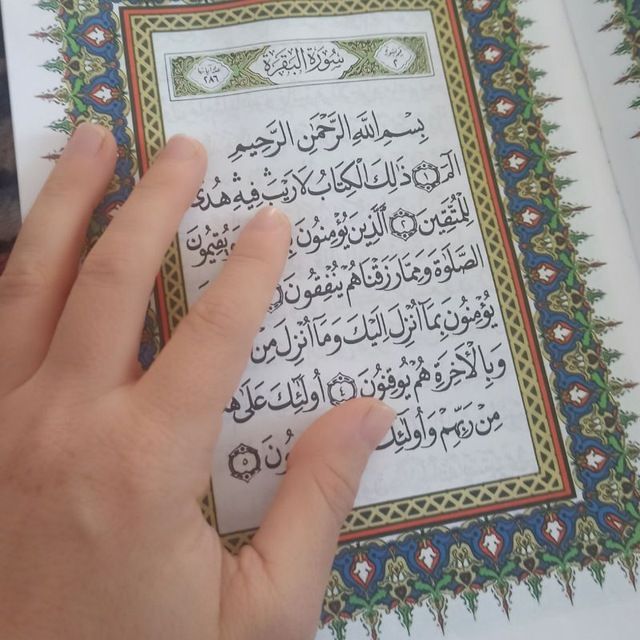 سُورَةُ البَقَرَةِ
٢
٢٨٦
بِسْمِ اللَّهِ الرَّحْمَٰنِ الرَّحِيمِ
الم ١ ذَٰلِكَ الْكِتَابُ لَا رَيْبَ فِيهِ هُدًى
لِلْمُتَّقِينَ ٢ الَّذِينَ يُؤْمِنُونَ وَيُقِيمُونَ
الصَّلَاةَ وَمِمَّا رَزَقْنَاهُمْ يُنْفِقُونَ
يُؤْمِنُونَ بِمَا أُنْزِلَ إِلَيْكَ وَمَا أُنْزِلَ مِنْ
وَبِالْآخِرَةِ هُمْ يُوقِنُونَ ٤ أُولَٰئِكَ عَلَىٰ
مِنْ رَبِّهِمْ وَأُولَٰئِكَ ٥